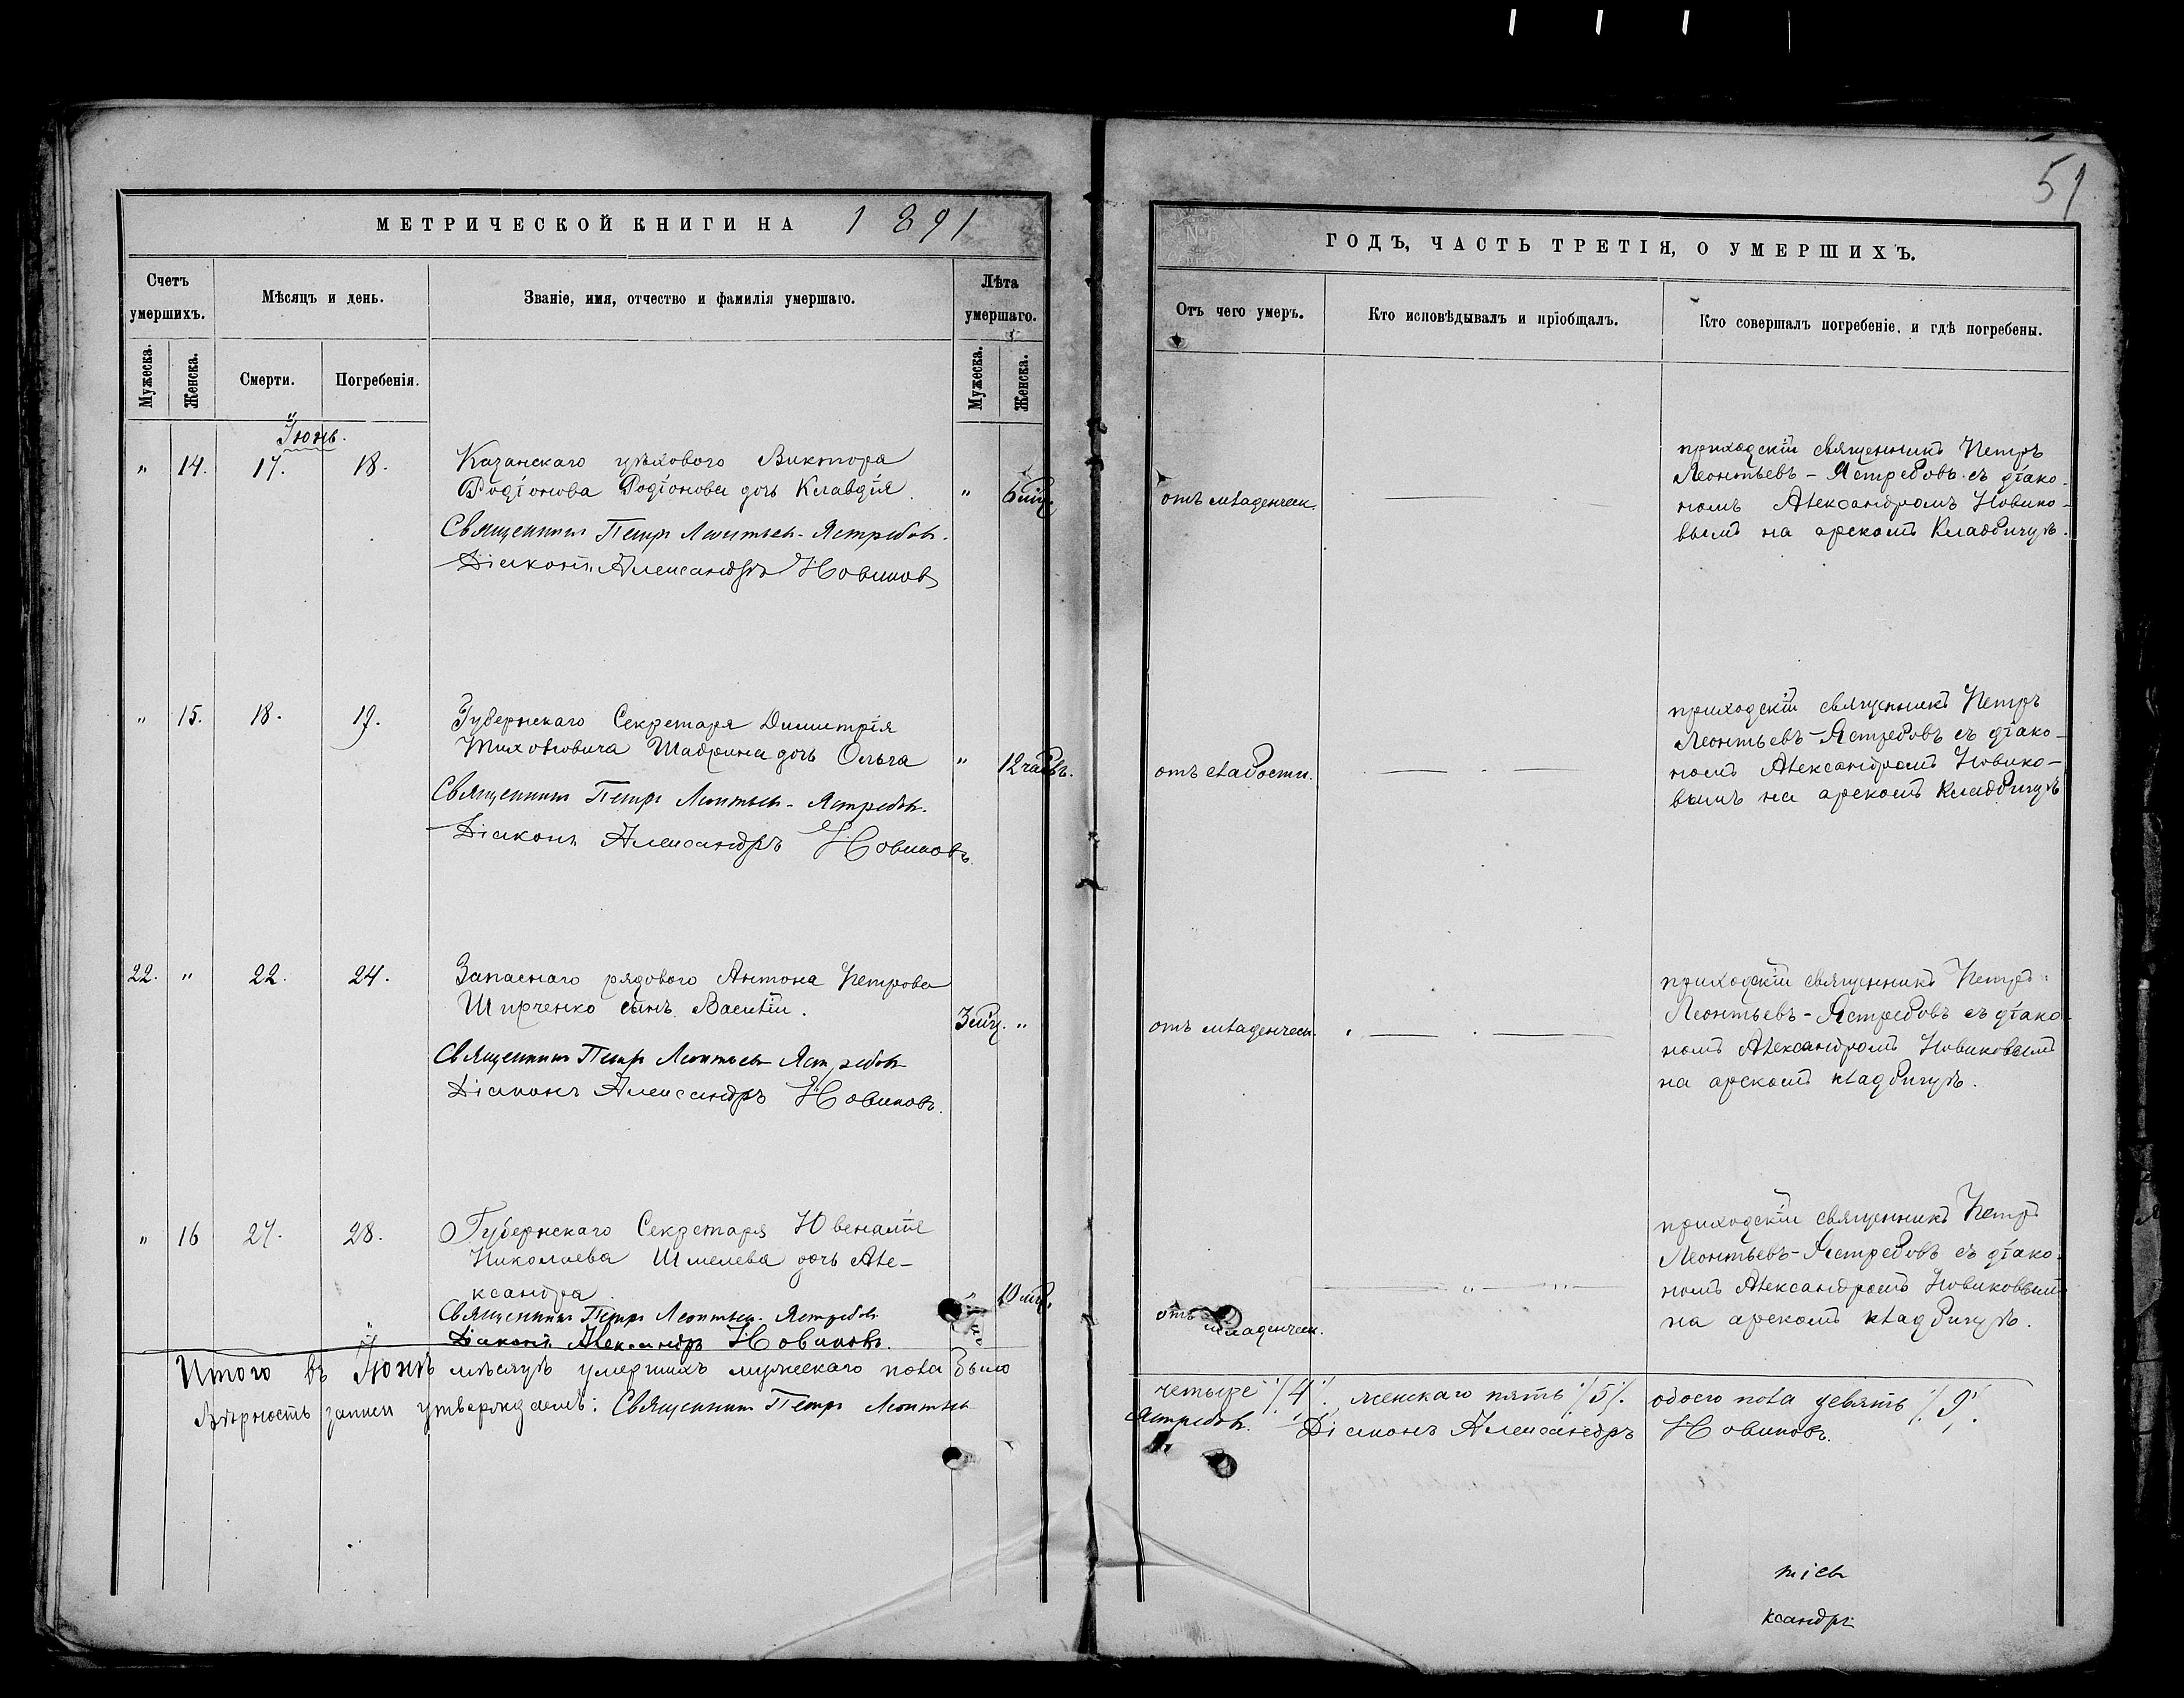 51
МЕТРИЧЕСКОЙ КНИГИ НА 1891
Счетъ умершихъ.
Мѣсяцъ и день.
Званіе, имя, отчество и фамилія умершаго.
Лѣта умершаго.
Мужеска.
Женска.
Смерти.
Погребенія.
Мужеска.
Женска.
Іюнь.
" 14. 17. 18.
Казанскаго цѣхового Виктора
Родіонова Родіонова дочь Клавдія.
" 6 мѣц.
Священникъ Петръ Леонтьевъ-Ястребовъ.
Діаконъ Александръ Новиковъ
" 15. 18. 19.
Губернскаго Секретаря Димитрія
Тихоновича Шадрина дочь Ольга
" 12 часовъ.
Священникъ Петръ Леонтьевъ-Ястребовъ.
Діаконъ Александръ Новиковъ.
22. " 22. 24.
Запаснаго рядового Антона Петрова
Ширченко сынъ Василій.
3 мѣц. "
Священникъ Петръ Леонтьевъ Ястребовъ
Діаконъ Александръ Новиковъ.
" 16 27. 28.
Губернскаго Секретаря Ювеналія
Николаева Шмелева дочь Але-
ксандра
10 мѣц.
Священникъ Петръ Леонтьевъ-Ястребовъ
Діаконъ Александръ Новиковъ.
Итого въ Іюнѣ мѣсяцѣ умершихъ мужескаго пола было
Вѣрность записи утверждаемъ: Священникъ Петръ Леонтьевъ
ГОДЪ, ЧАСТЬ ТРЕТІЯ, О УМЕРШИХЪ.
Отъ чего умеръ.
Кто исповѣдывалъ и пріобщалъ.
Кто совершалъ погребеніе, и гдѣ погребены.
отъ младенческ.
приходскій священникъ Петръ
Леонтьевъ-Ястребовъ съ діако-
номъ Александромъ Новико-
вымъ на арскомъ Кладбищѣ.
отъ слабости.
приходскій священникъ Петръ
Леонтьевъ-Ястребовъ съ діако-
номъ Александромъ Новико-
вымъ на арскомъ Кладбищѣ
отъ младенческ.
приходскій священникъ Петръ
Леонтьевъ-Ястребовъ съ діако-
номъ Александромъ Новиковымъ
на арскомъ кладбищѣ.
отъ
младенческ.
приходскій священникъ Петръ
Леонтьевъ-Ястребовъ съ діако-
номъ Александромъ Новиковымъ
на арскомъ кладбищѣ.
четыре /4/. женскаго пять /5/. обоего пола девять /9/.
Ястребовъ. Діаконъ Александръ Новиковъ.
ксандръ